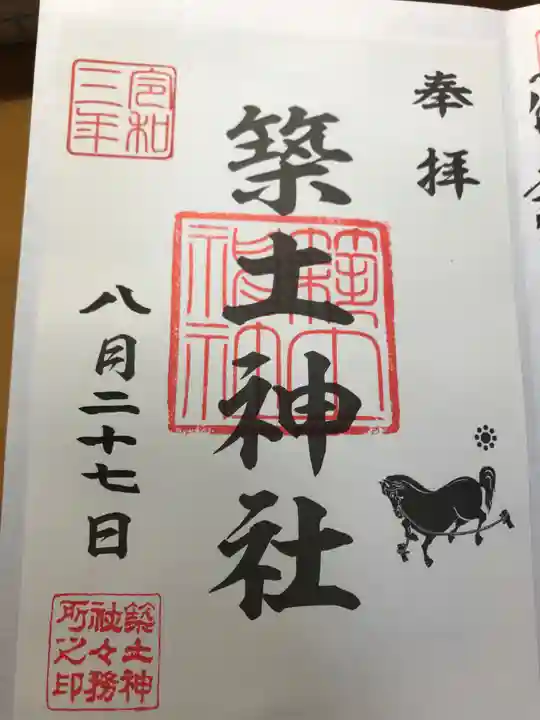 奉拝
築土神社
築土神社
令和
三年
八月二十七日
築土神
社々務
所之印